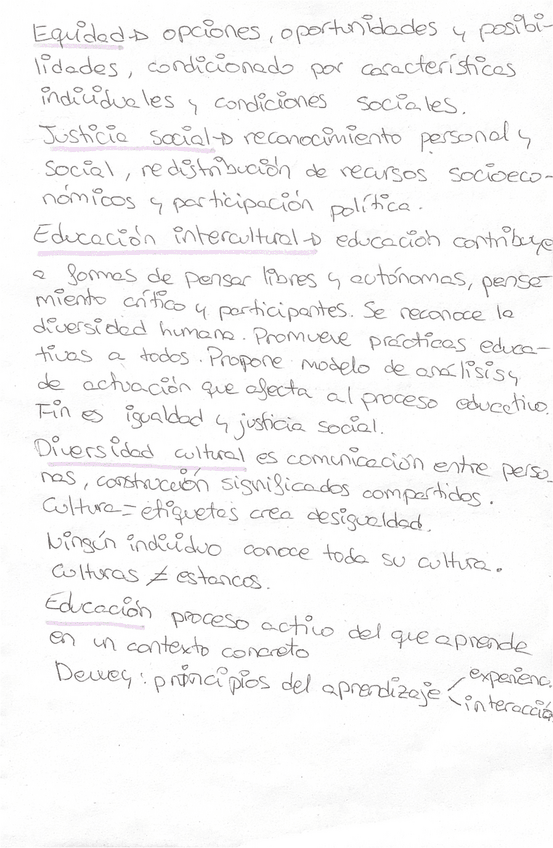 Equidad → opciones, oportunidades y posibi-
lidades, condicionado por características
individuales y condiciones sociales.
Justicia social → reconocimiento personal y
social, redistribución de recursos socioeco-
nómicos y participación política.
Educación intercultural → educación contribuye
a formas de pensar libres y autónomas, pensa-
miento crítico y participantes. Se reconoce la
diversidad humana. Promueve prácticas educa-
tivas a todos. Propone modelo de análisis y
de actuación que afecta al proceso educativo.
Fin es igualdad y justicia social.
Diversidad cultural es comunicación entre perso-
nas, construcción significados compartidos.
Cultura = etiquetas crea desigualdad.
Ningún individuo conoce toda su cultura.
Culturas ≠ estancos.
Educación proceso activo del que aprende
en un contexto concreto
Dewey: principios del aprendizaje < experienc.
interacció